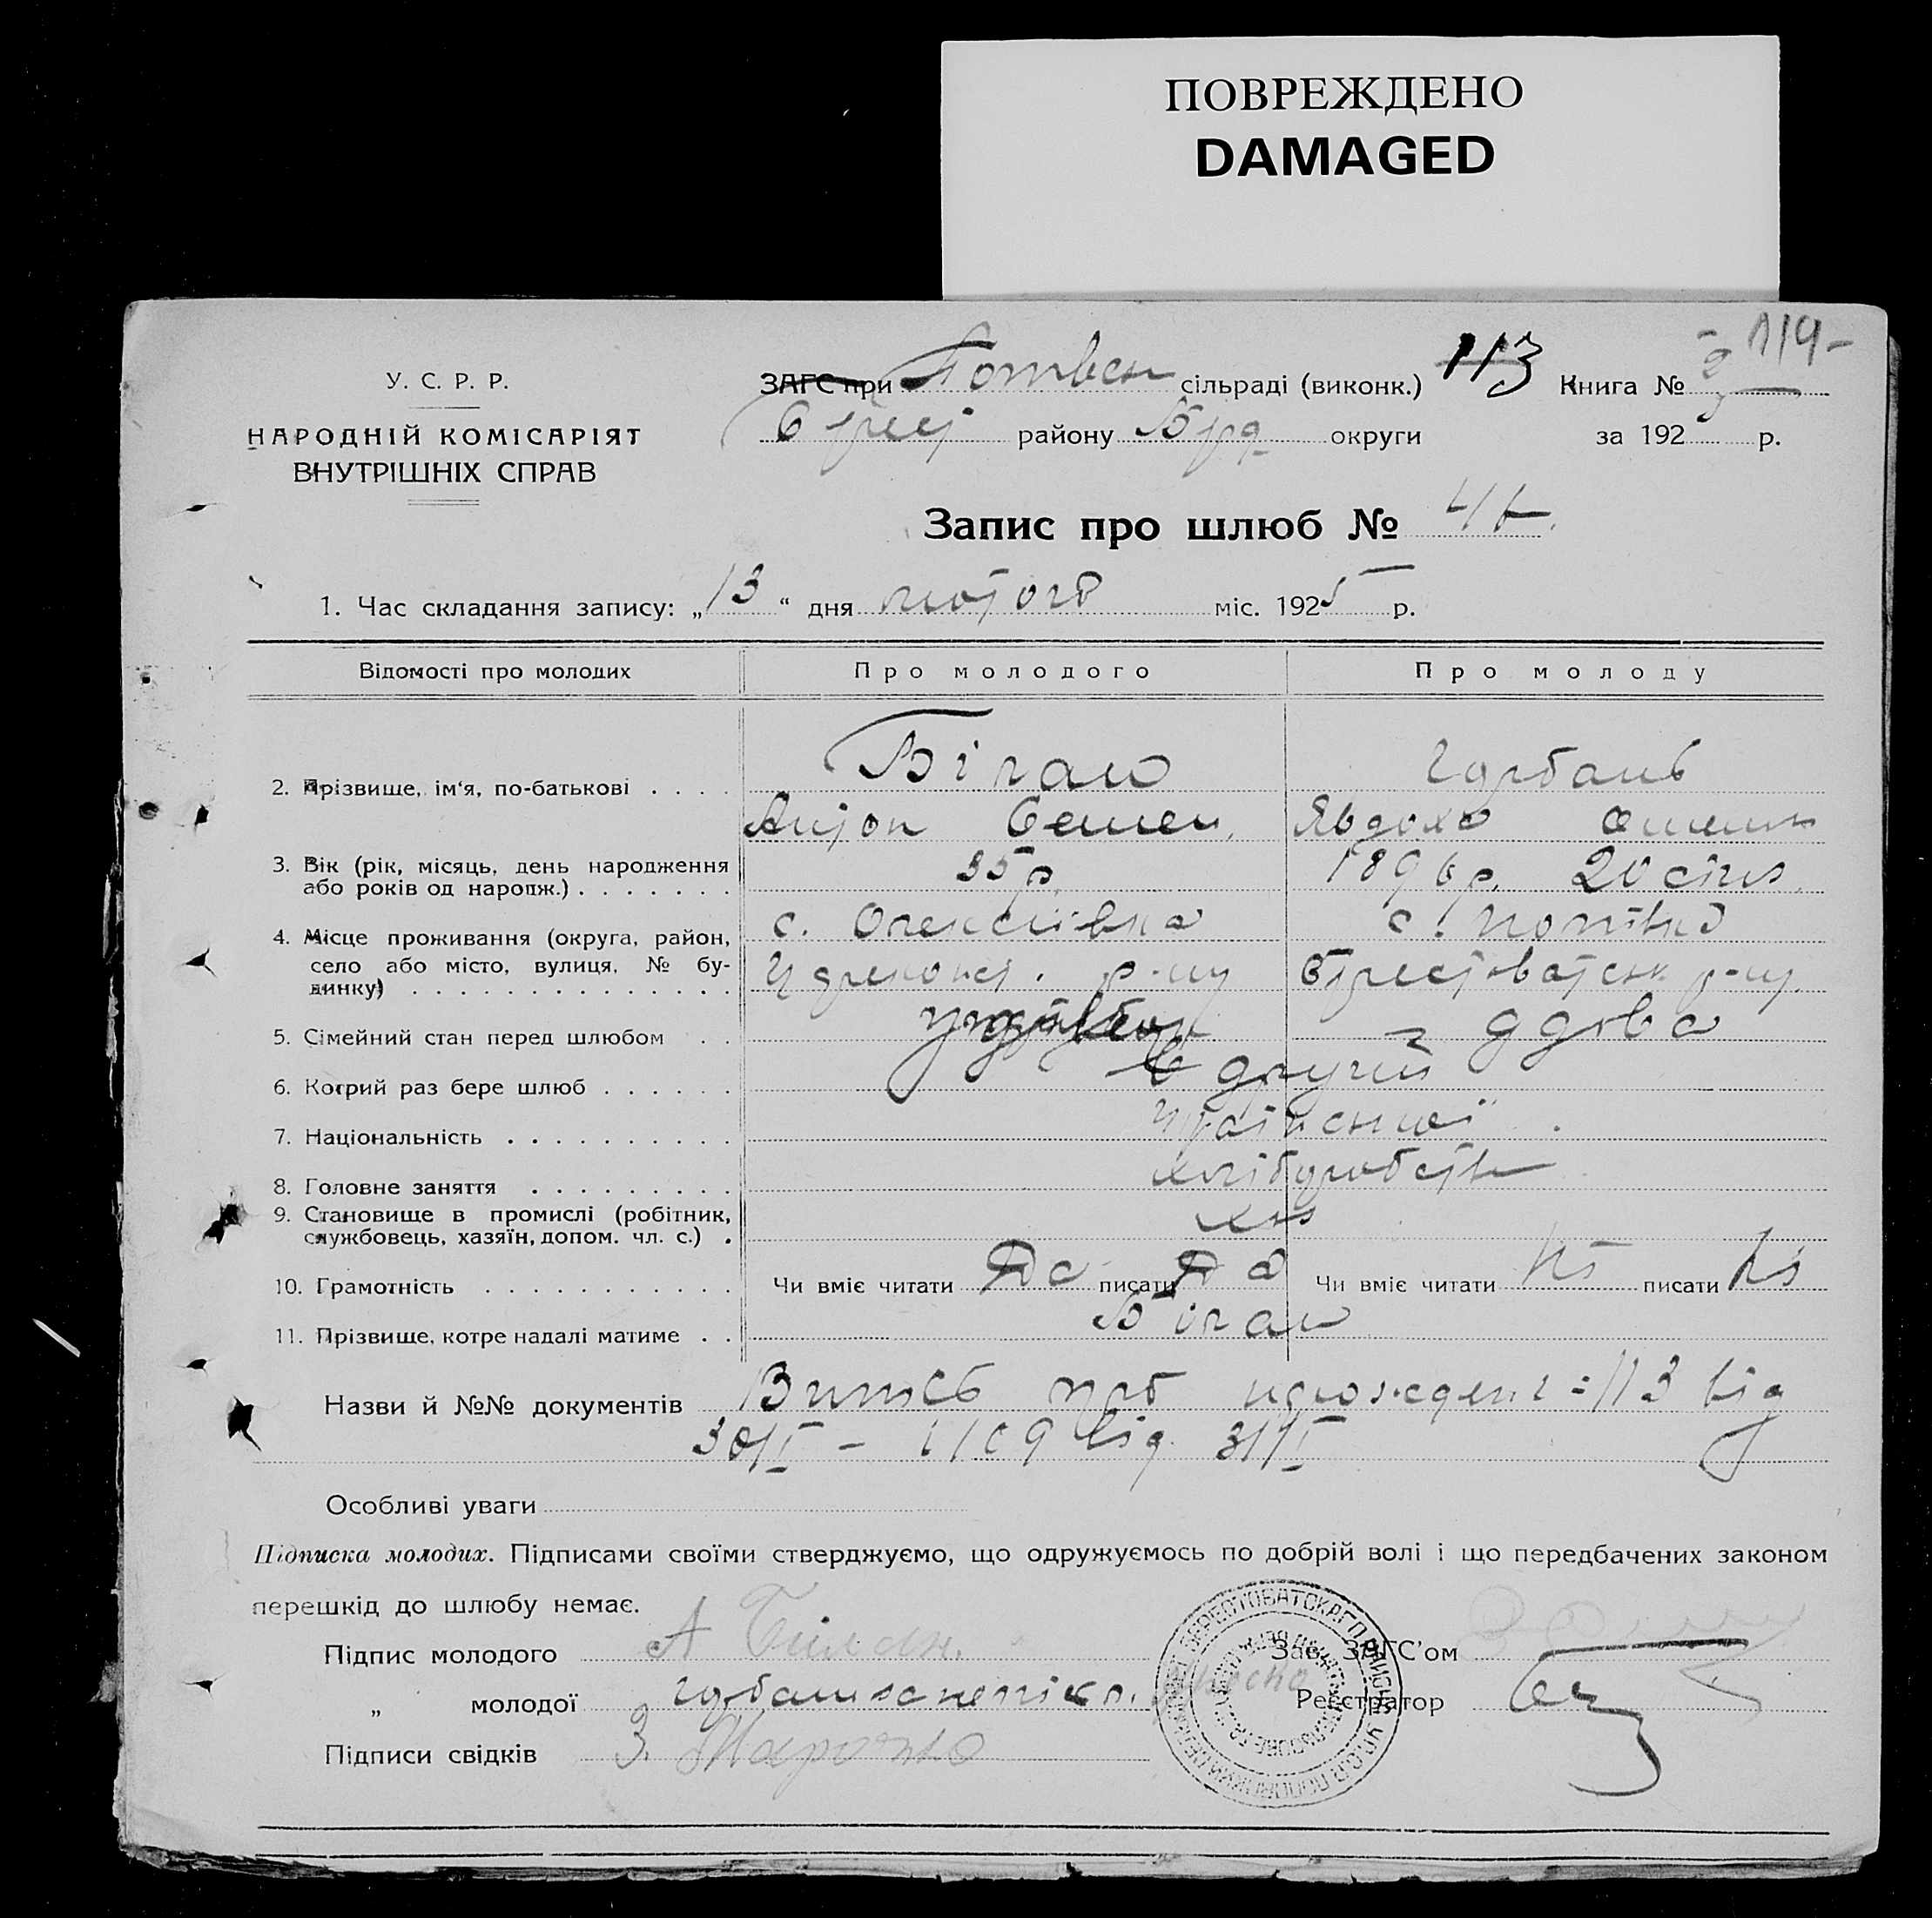 ПОВРЕЖДЕНО
DAMAGED
119-
У. С. Р. Р.
НАРОДНІЙ КОМІСАРІЯТ
ВНУТРІШНІХ СПРАВ
ЗАГС при сільраді (виконк.) 113 Книга №
району округи за 192 р.
Запис про шлюб №
1. Час складання запису: „13“ дня лютого міс. 1925 р.
Відомості про молодих Про молодого Про молоду
2. Прізвище, ім'я, по-батькові . . . . Білан Горбань
Антон Семен. Явдоха
3. Вік (рік, місяць, день народження 35 р. 1896 р. 20 січн
або років од народж.) . . . . . . .
4. Місце проживання (округа, район, с. Олексіївка с.
село або місто, вулиця, № бу- р-ну Берестоватськ р-ну.
динку) . . . . . . . . . . . . . .
5. Сімейний стан перед шлюбом . . вдова
6. Котрий раз бере шлюб . . . . . . другий
7. Національність . . . . . . . . . . Української
8. Головне заняття . . . . . . . . . хліборобств
9. Становище в промислі (робітник,
службовець, хазяїн, допом. чл. с.) .
10. Грамотність . . . . . . . . . . . Чи вміє читати Да писати Да Чи вміє читати Ні писати Ні
11. Прізвище, котре надалі матиме . . Білан
Назви й №№ документів Витсь про 113 від
30/I – від 31/I
Особливі уваги
Підписка молодих. Підписами своїми стверджуємо, що одружуємось по добрій волі і що передбачених законом
перешкід до шлюбу немає.
Підпис молодого А Билан. Зав. ЗАГС'ом
„ молодої Реєстратор
Підписи свідків З.